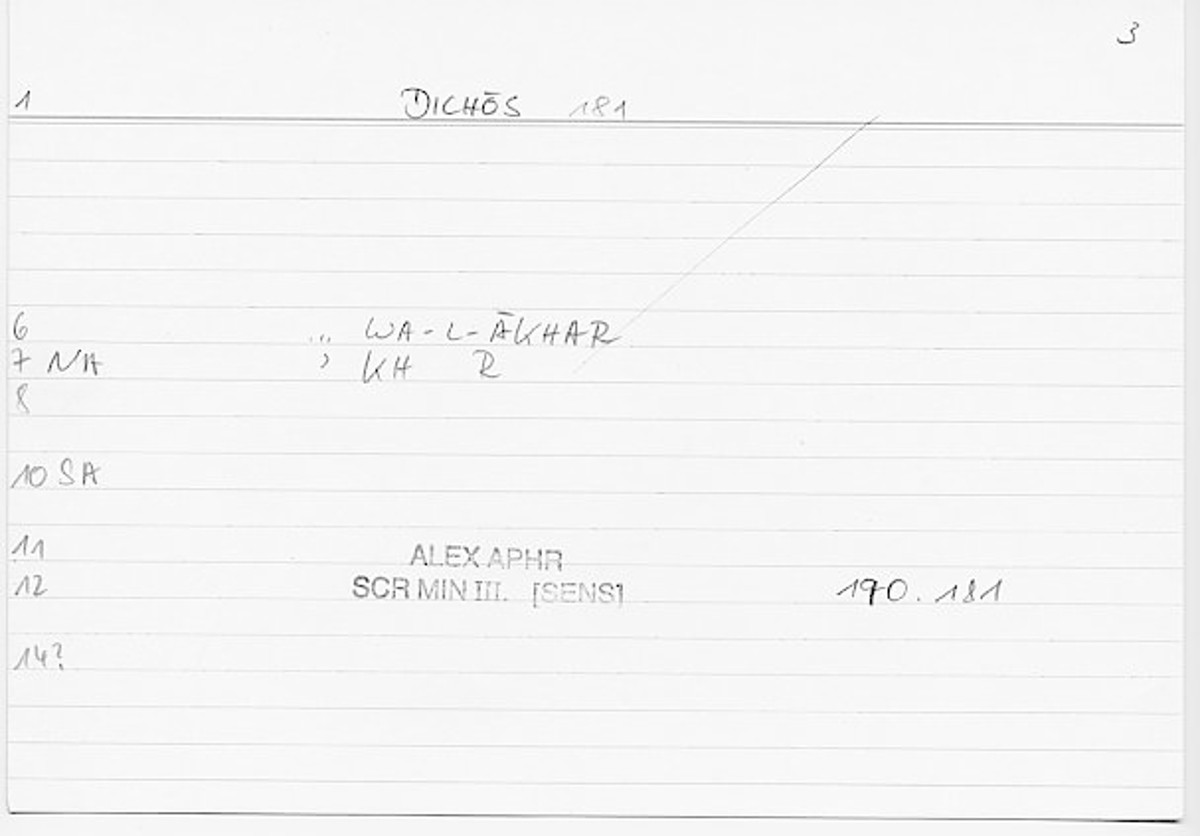 3
1 DICHŌS 181
6 ,,, WA-L-ĀKHAR
7 NA , KH R
8
10 SA
11 ALEX APHR
12 SCR MIN III. [SENS] 190.181
14?